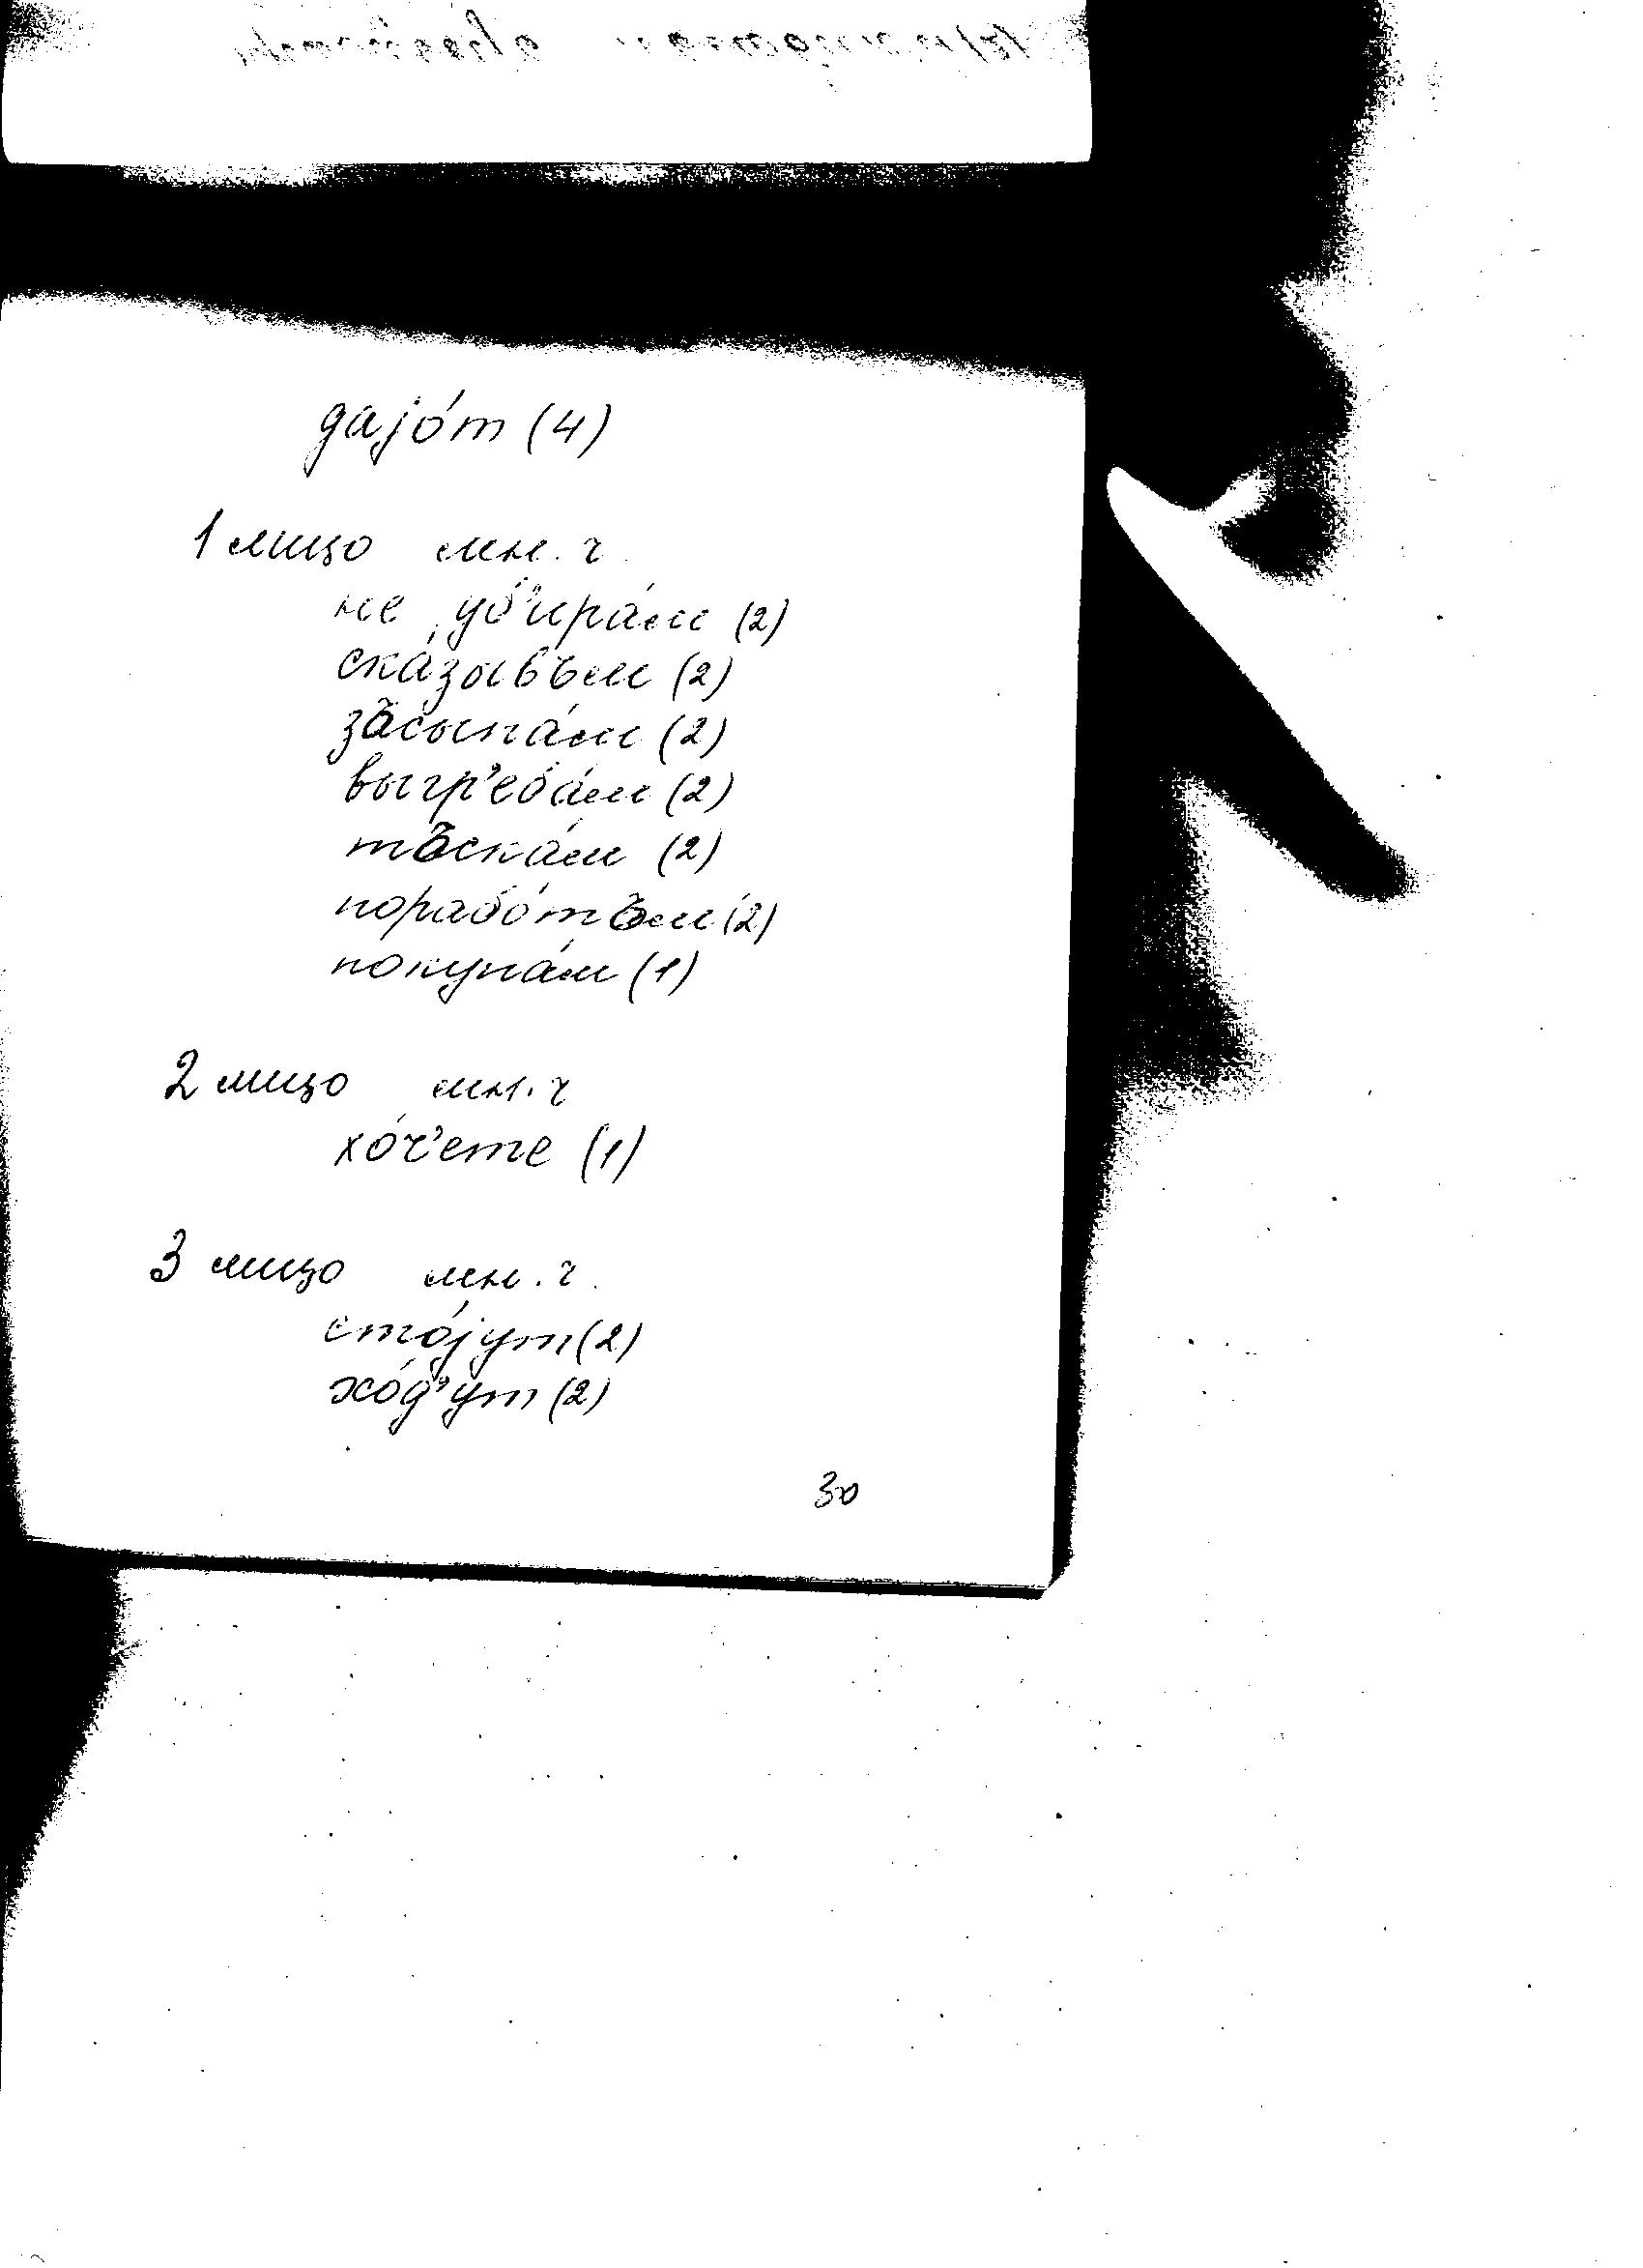 даjо́т (4)
1 лицо мн. ч.
не уб'ира́м (2)
ска́зывъм (2)
зъсыпа́м (2)
выгр'еба́м (2)
тъска́м (2)
порабо́тъм (2)
покупа́м (1)
2 лицо мн. ч
хо́ч'ете (1)
3 лицо мн. ч.
сто́jут (2)
хо́д'ут (2)
30